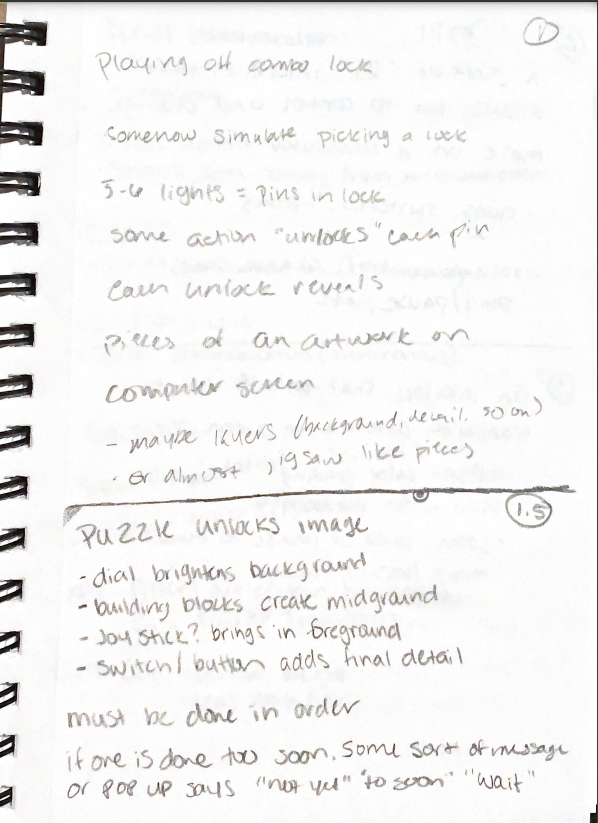 1
Playing off combo lock
Somehow simulate picking a lock
5-6 lights = pins in lock
some action "unlocks" each pin
Each unlock reveals
pieces of an artwork on
computer screen
- maybe layers (background, detail, so on)
- or almost jigsaw like pieces
1.5
Puzzle unlocks image
- dial brightens background
- building blocks create midground
- Joy stick? brings in foreground
- Switch / button adds final detail
must be done in order
if one is done too soon. Some sort of message
or pop up says "not yet" "to soon" "wait"